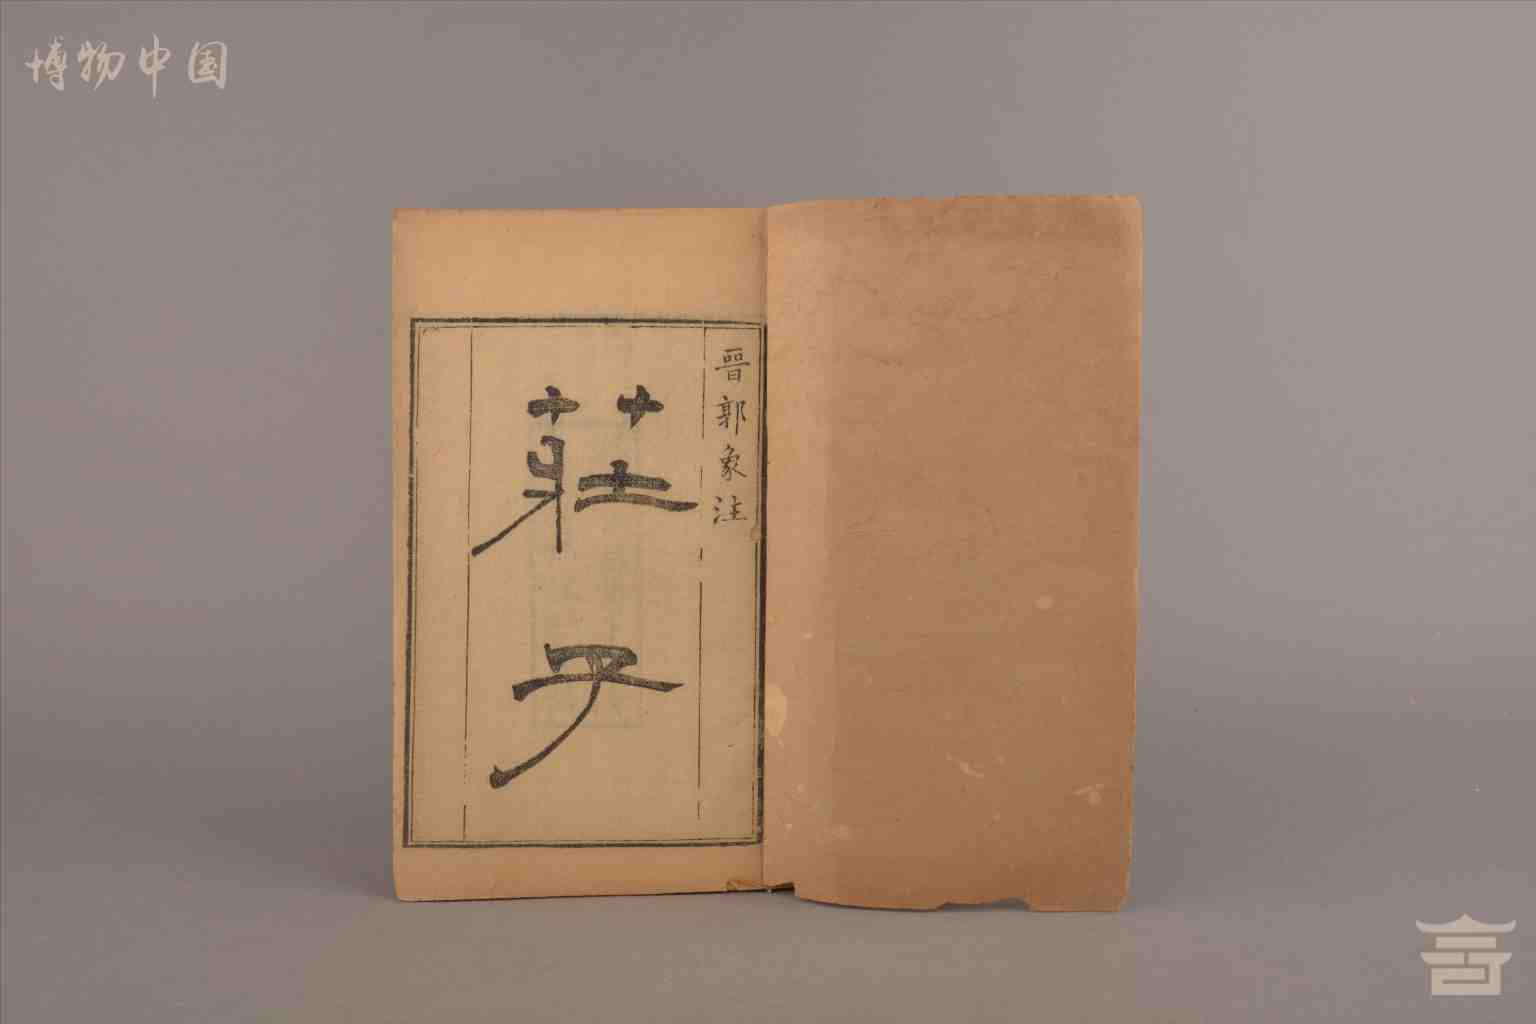 博物中国
晉郭象注
莊子